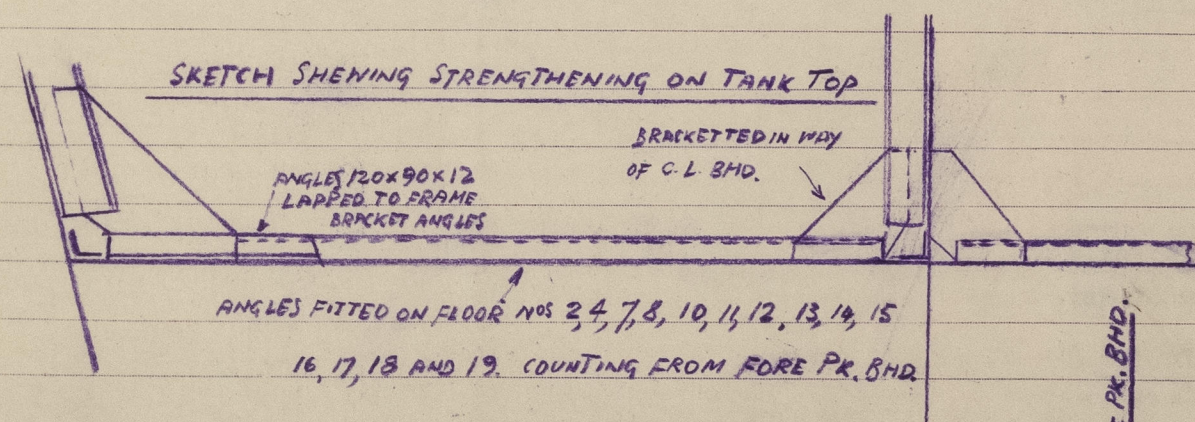 SKETCH SHEWING STRENGTHENING ON TANK TOP
BRACKETTED IN WAY
OF C.L. BHD.
ANGLES 120x90x12
LAPPED TO FRAME
BRACKET ANGLES
ANGLES FITTED ON FLOOR NOS 2, 4, 7, 8, 10, 11, 12, 13, 14, 15
16, 17, 18 AND 19. COUNTING FROM FORE PK. BHD.
PK. BHD.